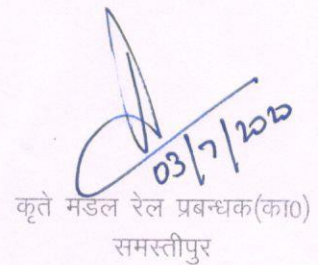 03/7/2020
कृते मंडल रेल प्रबन्धक(का0)
समस्तीपुर